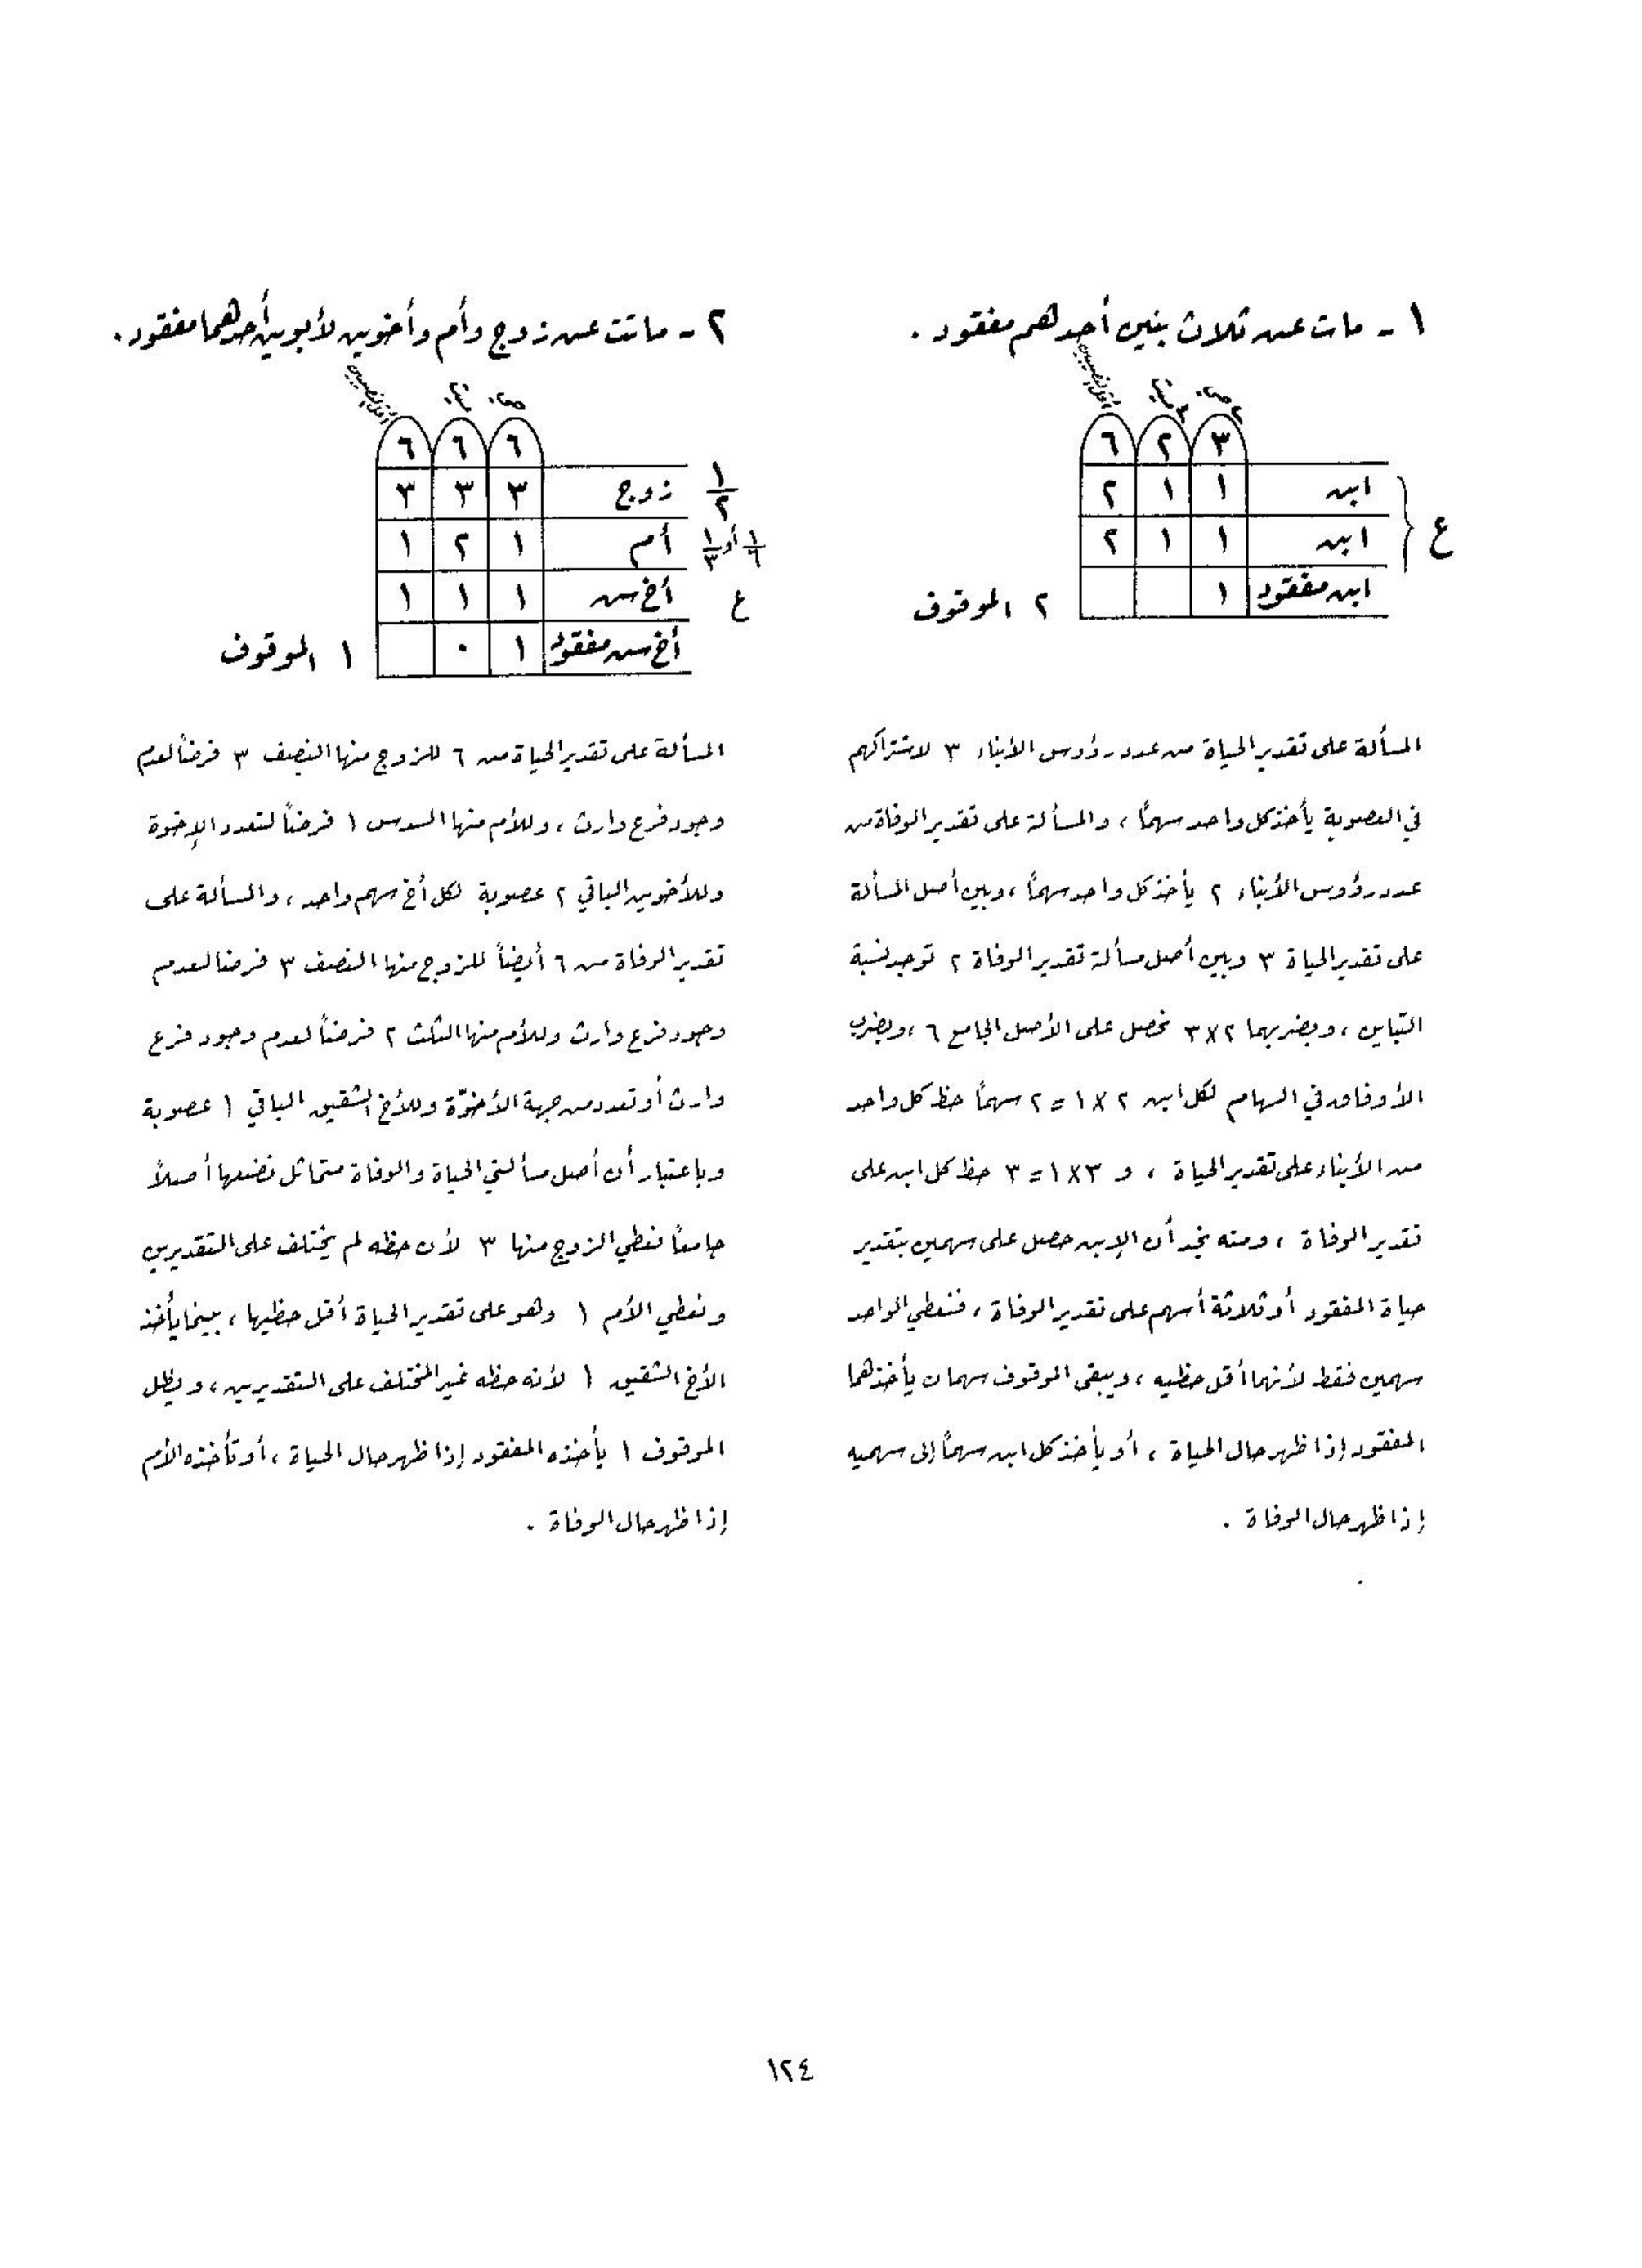 ١ - مات عن ثلاث بنين أحدهم مفقود .
أقل النصيبين
٢ حي ٣ ميت
٣ ٢ ٦
ع ابن ١ ١ ٢
ابن ١ ١ ٢
ابن مفقود ١ ٢ الموقوف
المسألة على تقدير الحياة من عدد رؤوس الأبناء ٣ لاشتراكهم
في العصوبة يأخذ كل واحد سهماً ، والمسألة على تقدير الوفاة من
عدد رؤوس الأبناء ٢ يأخذ كل واحد سهماً ، وبين أصل المسألة
على تقدير الحياة ٣ وبين أصل مسألة تقدير الوفاة ٢ توجد نسبة
التباين ، وبضربهما ٢×٣ نحصل على الأصل الجامع ٦ ، وبضرب
الأوفاق في السهام لكل ابن ٢×١ = ٢ سهماً حظ كل واحد
من الأبناء على تقدير الحياة ، و ٣×١ = ٣ حظ كل ابن على
تقدير الوفاة ، ومنه نجد أن الإبن حصل على سهمين بتقدير
حياة المفقود أو ثلاثة أسهم على تقدير الوفاة ، فنعطي الواحد
سهمين فقط لأنهما أقل حظيه ، ويبقى الموقوف سهمان يأخذهما
المفقود إذا ظهر حال الحياة ، أو يأخذ كل ابن سهماً إلى سهميه
إذا ظهر حال الوفاة .
٢ - ماتت عن زوج وأم وأخوين لأبوين أحدهما مفقود .
أقل النصيبين
حي ميت
٦ ٦ ٦
١/٢ زوج ٣ ٣ ٣
١/٦ أو ١/٣ أم ١ ٢ ١
ع أخ س ١ ١ ١
أخ س مفقود ١ ٠ ١ الموقوف
المسألة على تقدير الحياة من ٦ للزوج منها النصف ٣ فرضاً لعدم
وجود فرع وارث ، وللأم منها السدس ١ فرضاً لتعدد الإخوة
وللأخوين الباقي ٢ عصوبة لكل أخ سهم واحد ، والمسألة على
تقدير الوفاة من ٦ أيضاً للزوج منها النصف ٣ فرضا لعدم
وجود فرع وارث وللأم منها الثلث ٢ فرضاً لعدم وجود فرع
وارث أو تعدد من جهة الأخوّة وللأخ الشقيق الباقي ١ عصوبة
وباعتبار أن أصل مسألتي الحياة والوفاة متماثل نضعها أصلاً
جامعاً نعطي الزوج منها ٣ لأن حظه لم يختلف على التقديرين
ونعطي الأم ١ وهو على تقدير الحياة أقل حظيها ، بينما يأخذ
الأخ الشقيق ١ لأنه حظه غير المختلف على التقديرين ، ويظل
الموقوف ١ يأخذه المفقود إذا ظهر حال الحياة ، أو تأخذه الأم
إذا ظهر حال الوفاة .
١٢٤